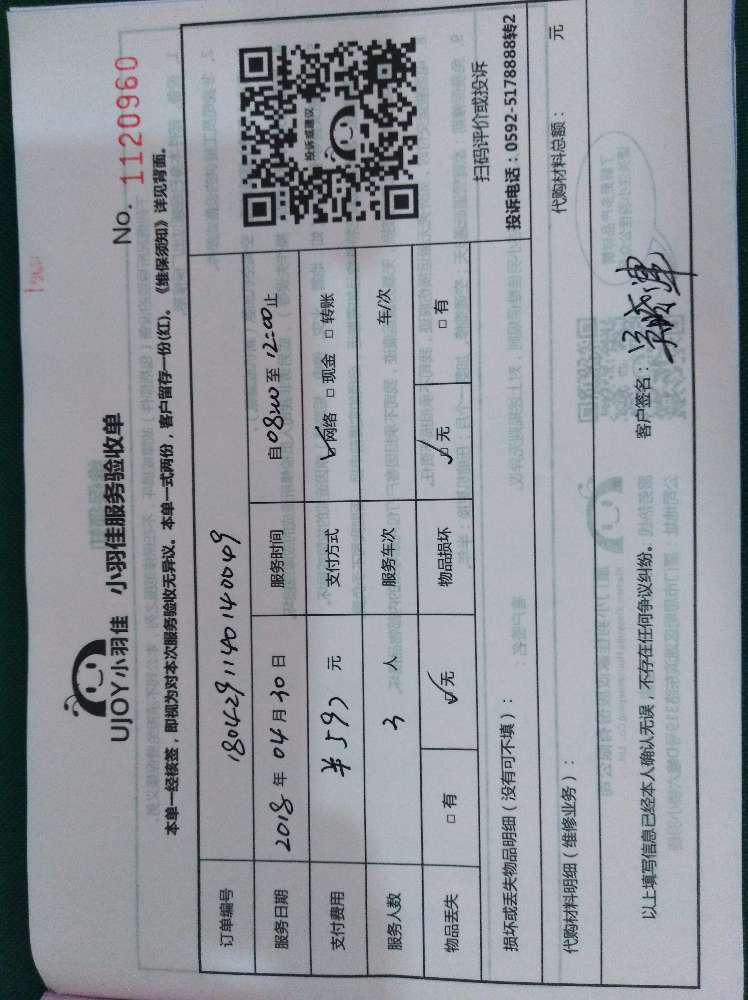 UJOY小羽佳 小羽佳服务验收单
No. 1120960
本单一经核签，即视为对本次服务验收无异议。本单一式两份，客户留存一份(红)。《维保须知》详见背面。
订单编号 1804291140140049
投诉或建议
服务日期 2018 年 04 月 30 日 服务时间 自 08:00 至 12:00 止
支付费用 ¥593 元 支付方式 ✓网络 □ 现金 □ 转账
服务人数 3 人 服务车次 车/次
物品丢失 □ 有 ✓无 物品损坏 ✓无 □ 有
扫码评价或投诉
投诉电话：0592-5178888转2
损坏或丢失物品明细（没有可不填）：
代购材料明细（维修业务）： 代购材料总额： 元
以上填写信息已经本人确认无误，不存在任何争议纠纷。 客户签名：